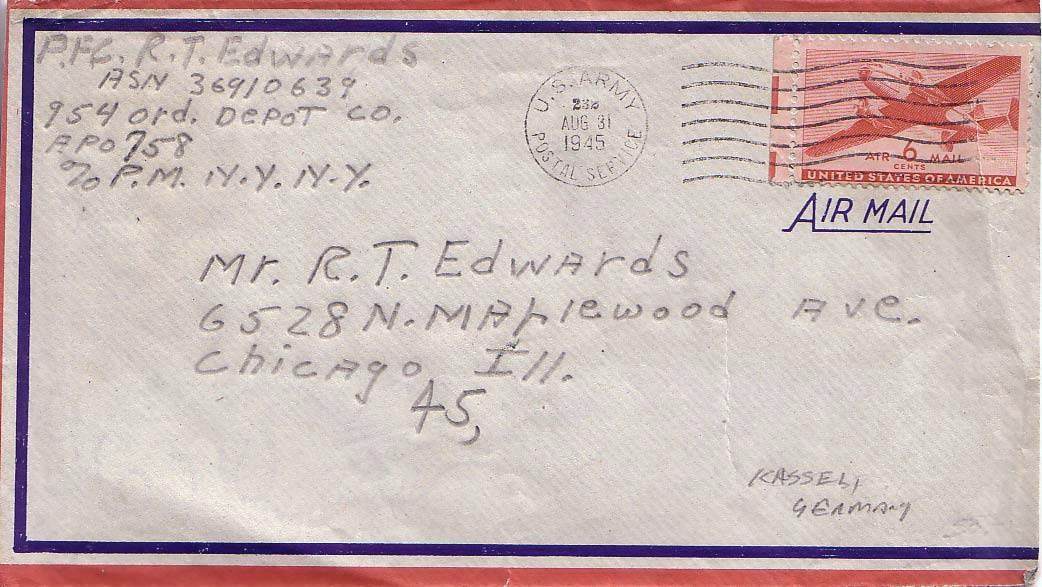 P.F.C. R.T. Edwards
ASN 36910639
954 ord. DEPOT CO.
APO 758
℅ P.M. N.Y. N.Y.
U.S. ARMY
AUG 31
1945
POSTAL SERVICE
AIR 6 MAIL
CENTS
UNITED STATES OF AMERICA
AIR MAIL
Mr. R.T. Edwards
6528 N. Maplewood Ave.
Chicago Ill.
45,
KASSEL,
GERMANY